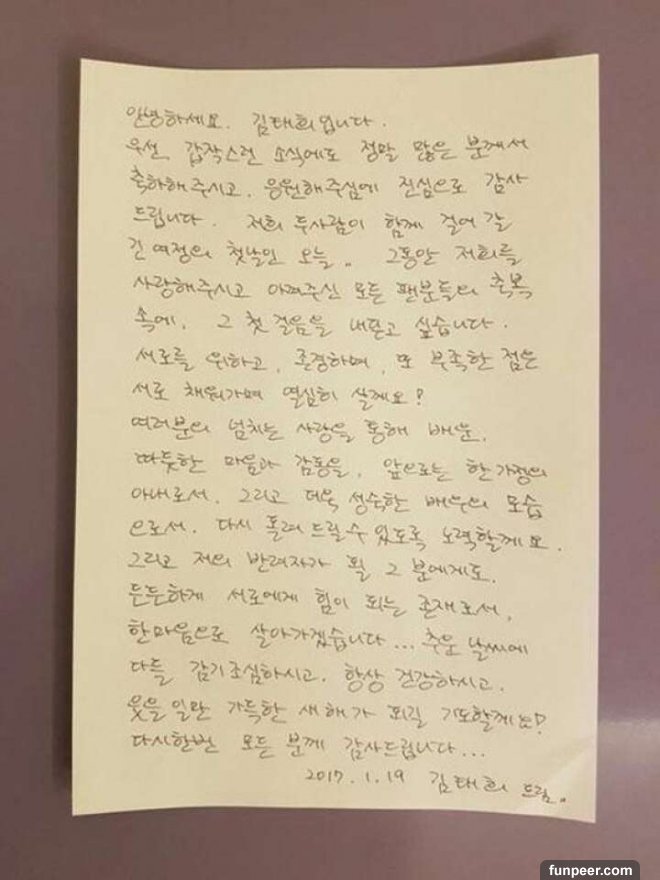 안녕하세요. 김태희입니다.
우선, 갑작스런 소식에도 정말 많은 분께서
축하해주시고, 응원해주심에 진심으로 감사
드립니다. 저희 두사람이 함께 걸어 갈
긴 여정의 첫날인 오늘.. 그동안 저희를
사랑해주시고 아껴주신 모든 팬분들의 축복
속에, 그 첫 걸음을 내딛고 싶습니다.
서로를 위하고, 존경하며, 또 부족한 점은
서로 채워가며 열심히 살께요!
여러분의 넘치는 사랑을 통해 배운,
따뜻한 마음과 감동을, 앞으로는 한 가정의
아내로서, 그리고 더욱 성숙한 배우의 모습
으로서, 다시 돌려 드릴 수 있도록 노력할께요.
그리고 저의 반려자가 될 그 분에게도,
든든하게 서로에게 힘이 되는 존재로서,
한마음으로 살아가겠습니다... 추운 날씨에
다들 감기조심하시고, 항상 건강하시고,
웃을 일만 가득한 새해가 되길 기도할께요!
다시한번 모든 분께 감사드립니다...
2017. 1. 19 김태희 드림..
funpeer.com